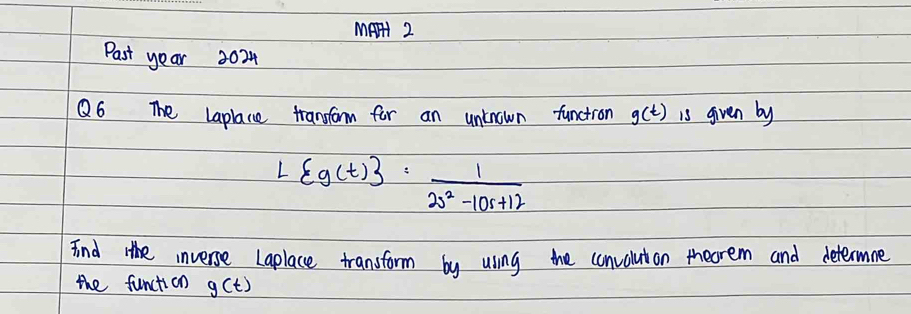 MATH 2
Past year 2024
Q6 The Laplace transform for an unknown function g(t) is given by
L {g(t)} = 1 / (2s² - 10s + 12)
Find the inverse Laplace transform by using the convolution theorem and determine
the function g(t)